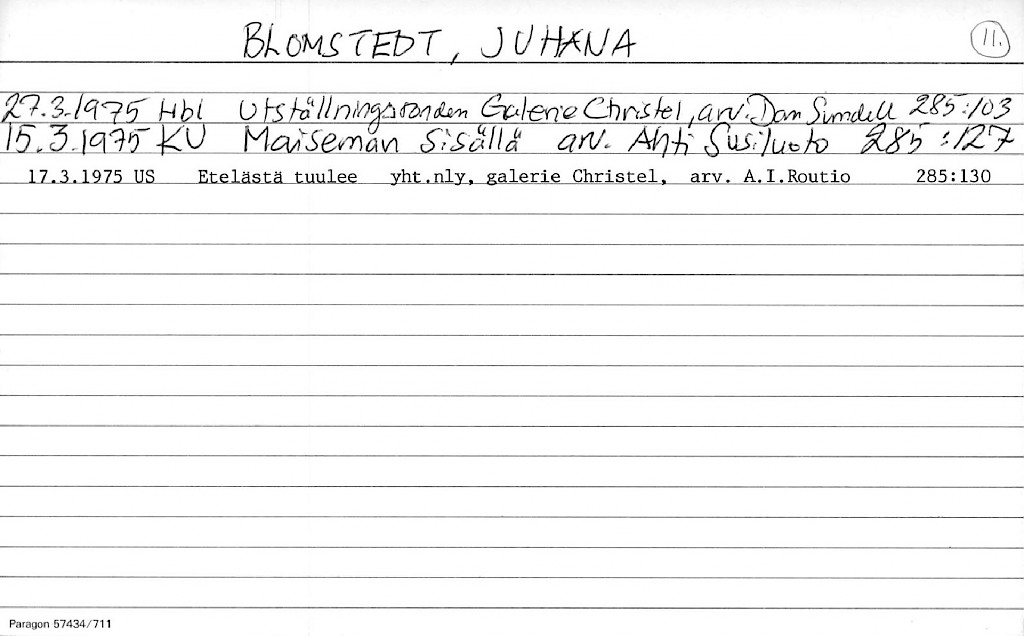 BLOMSTEDT, JUHANA 11.
27.3.1975 Hbl Utställningsronden Galerie Christel, arv. Dan Sundell 285:103
15.3.1975 KU Maiseman sisällä arv. Ahti Susiluoto 285:127
17.3.1975 US Etelästä tuulee yht.nly, galerie Christel, arv. A.I.Routio 285:130
Paragon 57434/711